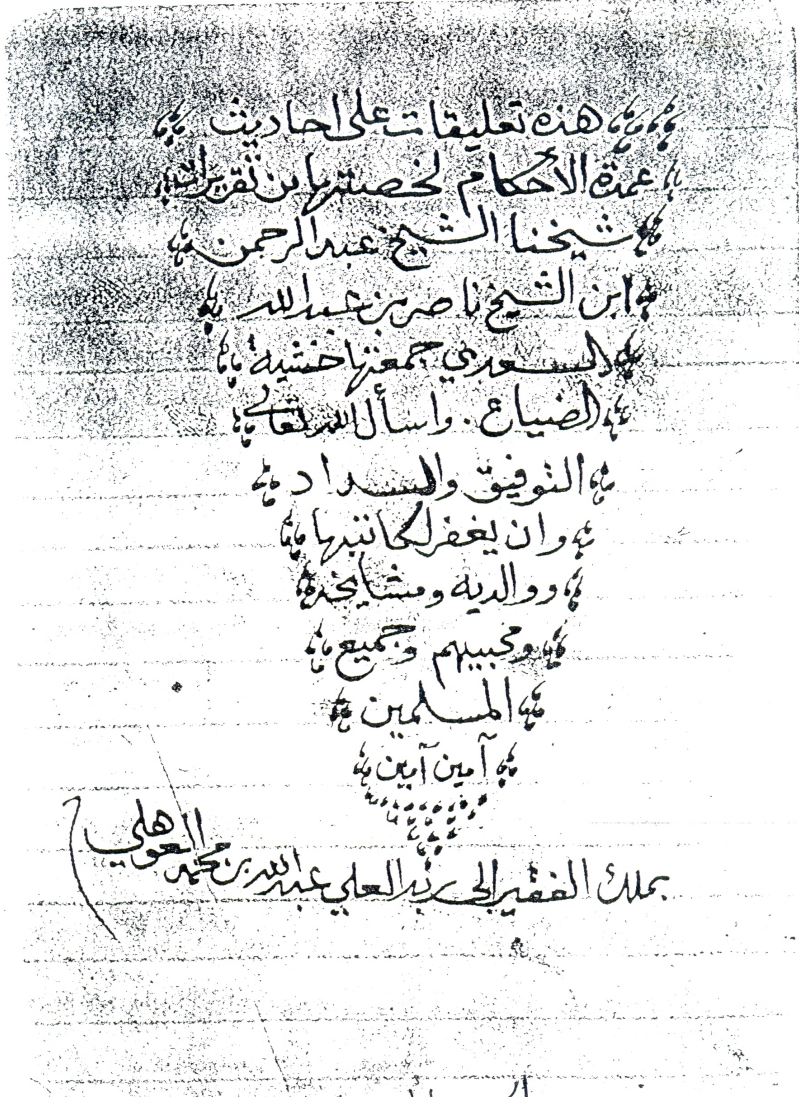 هذه تعليقات على احاديث
عمدة الأحكام لخصتها من تقريرات
شيخنا الشيخ عبد الرحمن
ابن الشيخ ناصر بن عبد الله
السعدي جمعتها خشية
الضياع . واسأل الله تعالى
التوفيق والسداد
وان يغفر لكاتبها
ووالديه ومشايخه
ومحبيهم وجميع
المسلمين
آمين آمين
بملك الفقير الى ربه العلي عبد الله بن محمد العوهلي